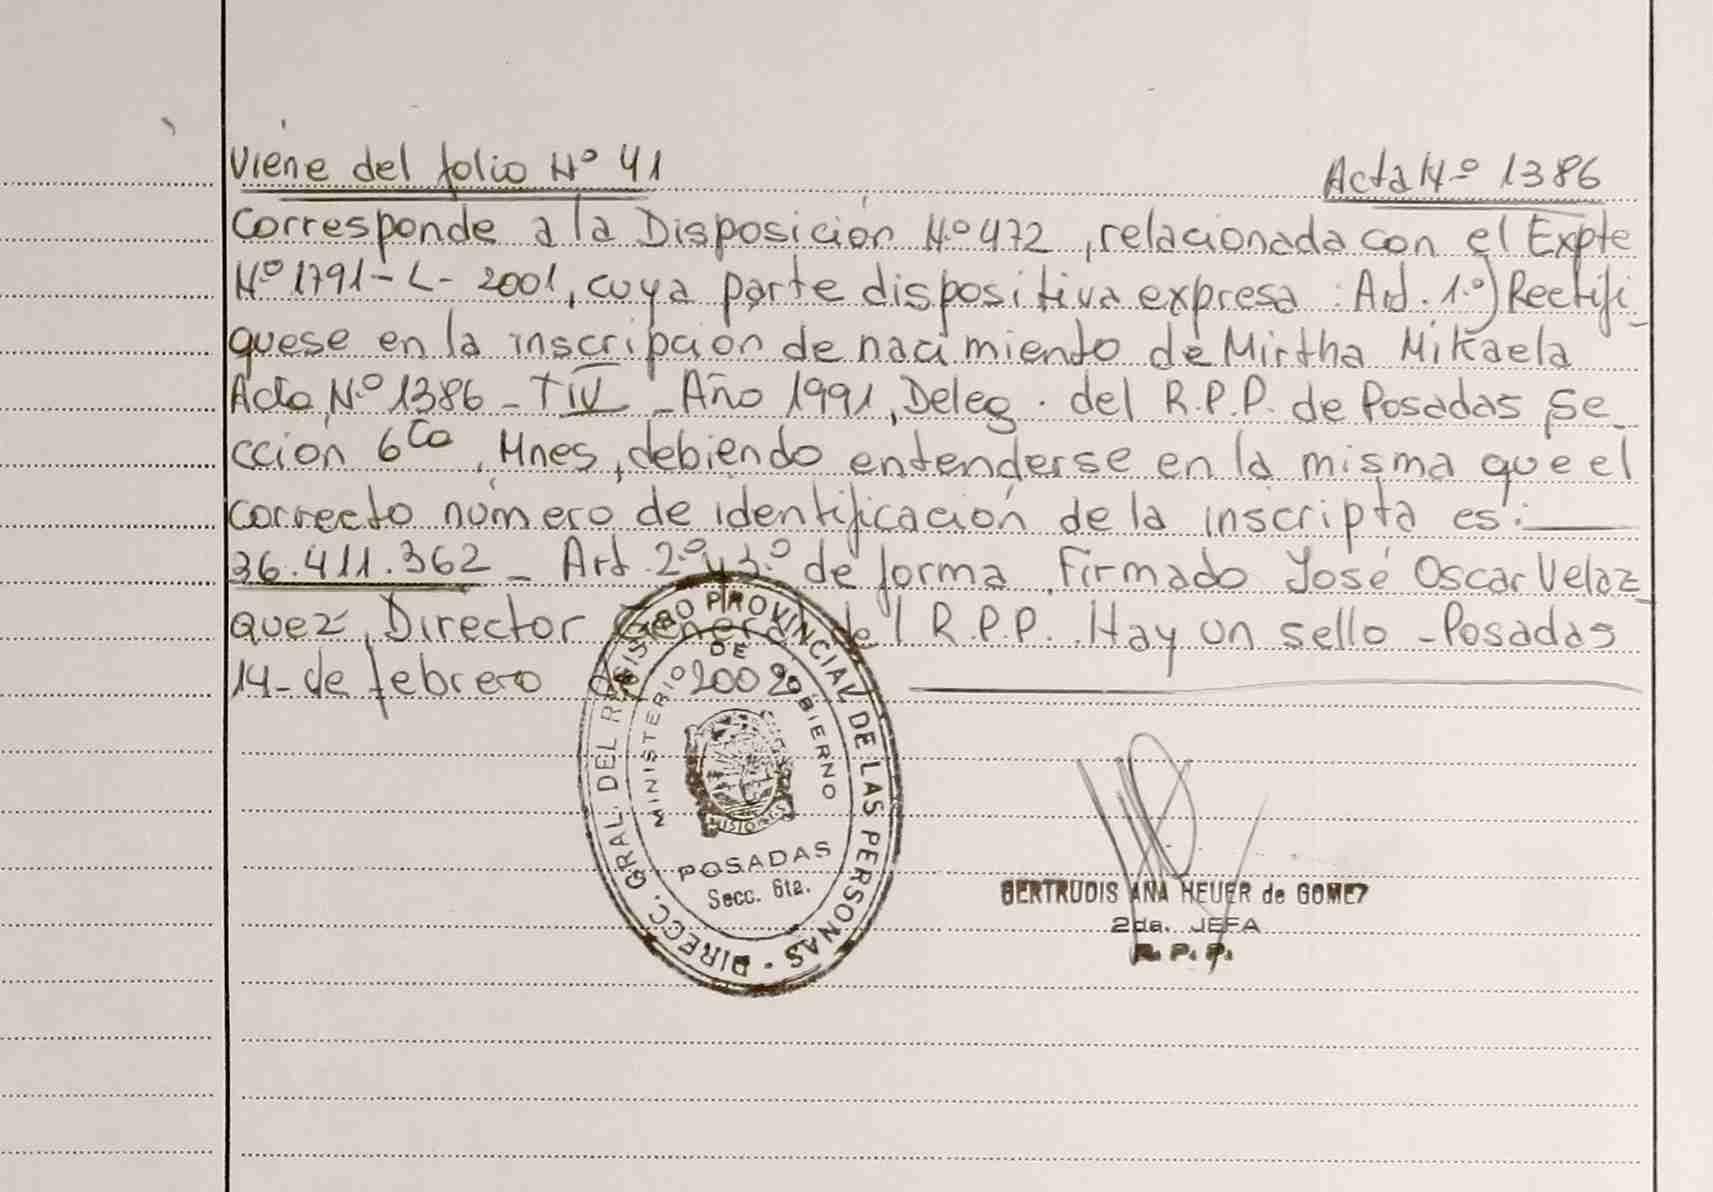 Viene del folio Nº 41 Acta Nº 1386
Corresponde a la Disposición Nº 472, relacionada con el Expte
Nº 1791-L-2001, cuya parte dispositiva expresa: Art. 1.º) Rectifi_
quese en la inscripción de nacimiento de Mirtha Mikaela
Acta Nº 1386 - T IV - Año 1991, Deleg. del R.P.P. de Posadas Se_
cción 6ta, Mnes, debiendo entenderse en la misma que el
correcto número de identificación de la inscripta es:
36.411.362 _ Art. 2.º y 3.º de forma. Firmado José Oscar Velaz_
quez, Director General del R.P.P. Hay un sello - Posadas
14 - de febrero de 2002
DIRECC. GRAL. DEL REGISTRO PROVINCIAL DE LAS PERSONAS -
MINISTERIO DE GOBIERNO
MISIONES
POSADAS
Secc. 6ta.
GERTRUDIS ANA HEUER de GOMEZ
2da. JEFA
R. P. P.